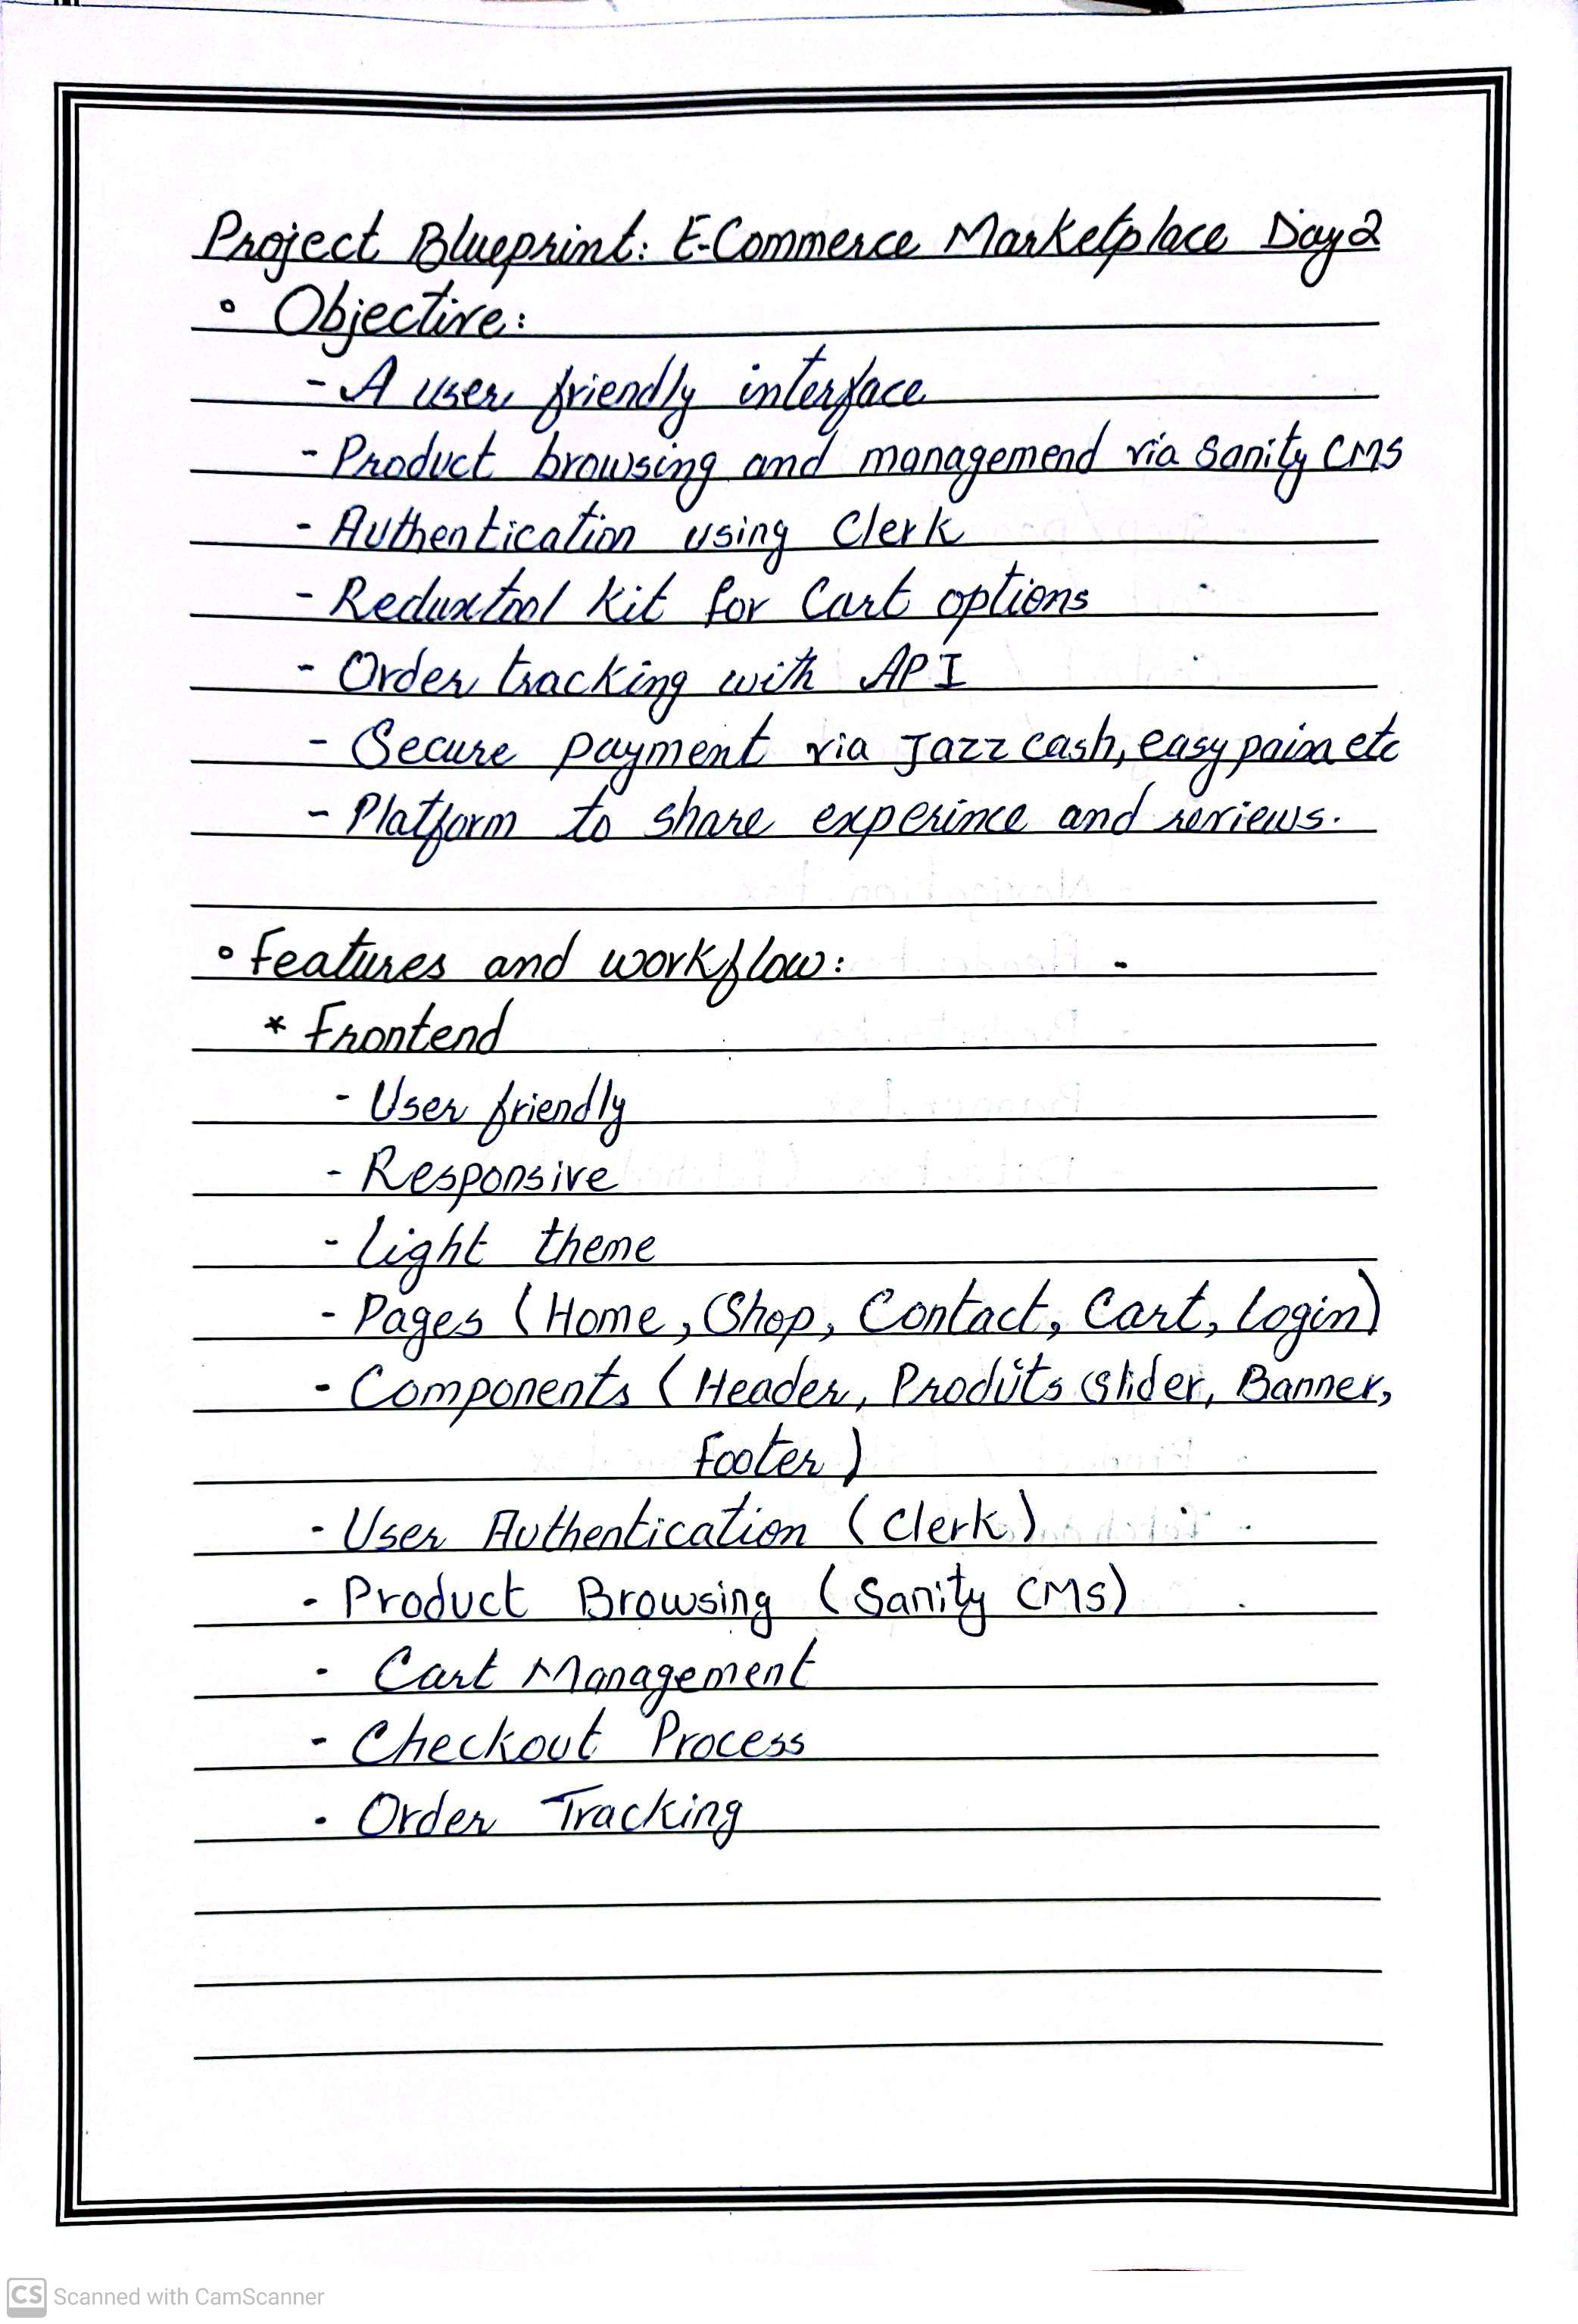 Project Blueprint: E-Commerce Marketplace Day 2
° Objective:
- A user friendly interface
- Product browsing and managemend via Sanity CMS
- Authentication using Clerk
- Reduxtool Kit for Cart options
- Order tracking with API
- Secure payment via Jazz cash, easy paisa etc
- Platform to share experince and reviews.
° Features and workflow:
* Frontend
- User friendly
- Responsive
- light theme
- Pages (Home, Shop, Contact, Cart, login)
- Components (Header, Produts slider, Banner,
Footer)
- User Authentication (Clerk)
- Product Browsing (Sanity CMS)
- Cart Management
- Checkout Process
- Order Tracking
CS Scanned with CamScanner